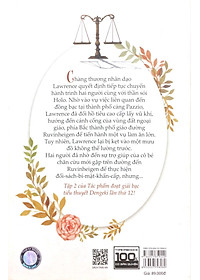 Chàng thương nhân dạo
Lawrence quyết định tiếp tục chuyến
hành trình hai người cùng với thần sói
Holo. Nhờ vào vụ việc liên quan đến
đồng bạc tại thành phố cảng Pazzio,
Lawrence đã đổi hồ tiêu cao cấp lấy vũ khí,
hướng đến cánh cổng của vùng đất ngoại
giáo, phía Bắc thành phố giáo đường
Ruvinheigen để tính một vụ làm ăn lớn.
Tuy nhiên, Lawrence lại bị kẹt vào một mưu
đồ không thể lường trước.
Hai người đã nhờ đến sự trợ giúp của cô bé
chăn cừu mới gặp trên đường đến
Ruvinheigen để thực hiện
đối-sách-bí-mật-khẩn-cấp, nhưng...
Tập 2 của Tác phẩm đoạt giải bạc
tiểu thuyết Dengeki lần thứ 12!
100%
Giá: 89.000đ